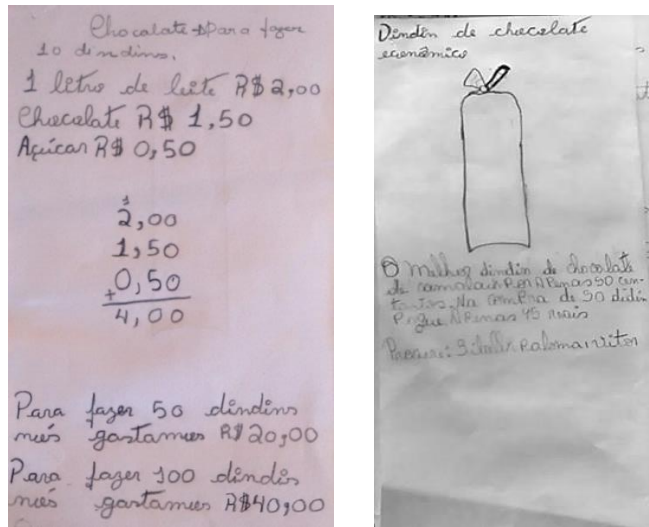 Chocolate → Para fazer
10 dindins.
1 litro de leite R$ 2,00
Chocolate R$ 1,50
Açúcar R$ 0,50
1
2,00
1,50
0,50
+
4,00
Para fazer 50 dindins
nós gastamos R$ 20,00
Para fazer 100 dindis
nós gastamos R$ 40,00
Dindin de chocolate
econômico
O melhor dindin de chocolate
de Por APenas 50 cen-
tavos. Na comPra de 50 didin
Pague APenas 45 reais
Paloma, vitor